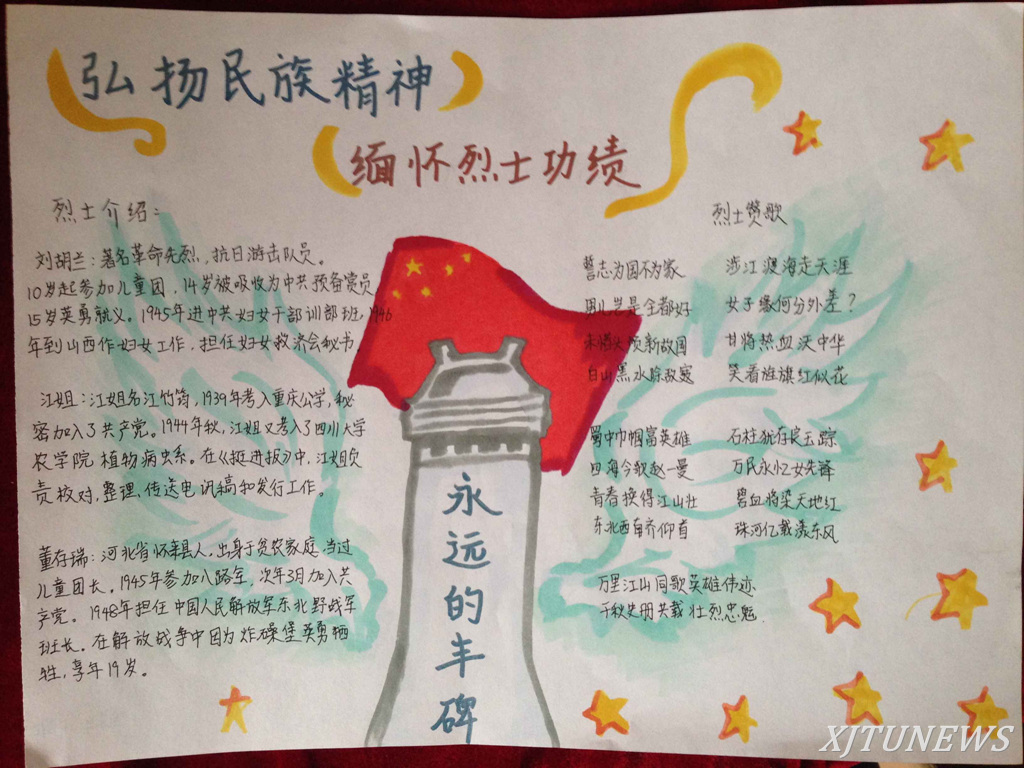 弘扬民族精神
缅怀烈士功绩
烈士介绍:
刘胡兰:著名革命先烈,抗日游击队员。
10岁起参加儿童团,14岁被吸收为中共预备党员
15岁英勇就义。1945年进中共妇女干部训部班,1946
年到山西作妇女工作,担任妇女救济会秘书。
江姐:江姐名江竹筠,1939年考入重庆公学,秘
密加入了共产党。1944年秋,江姐又考入了四川大学
农学院植物病虫系。在《挺进报》中,江姐负
责校对,整理,传送电讯稿和发行工作。
董存瑞:河北省怀来县人,出身于贫农家庭,当过
儿童团长。1945年参加八路军,次年3月加入共
产党。1948年担任中国人民解放军东北野战军
班长。在解放战争中因为炸碉堡英勇牺
牲,享年19岁。
永远的丰碑
烈士赞歌
誓志为国不为家 涉江渡海走天涯
男儿岂是全都好 女子缘何分外差?
未惜头颅新故国 甘将热血沃中华
白山黑水除敌寇 笑看旌旗红似花
蜀中巾帼富英雄 石柱犹存良玉踪
四海今钦赵一曼 万民永忆女先锋
青春换得江山壮 碧血将染天地红
东北西南齐仰首 珠河亿载漾东风
万里江山同歌英雄伟迹
千秋史册共载壮烈忠魂
XJTUNEWS